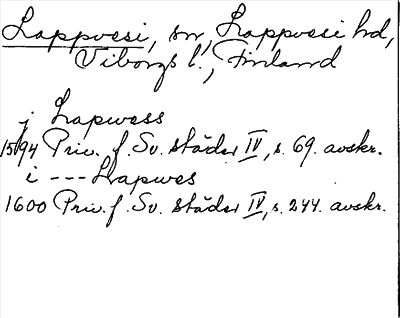 Lappvesi, sn, Lappvesi hd,
Viborgs l., Finland
j Lapwess
1594 Priv. f. Sv. städer IV, s. 69. avskr.
i --- Lapwes
1600 Priv. f. Sv. städer IV, s. 244. avskr.